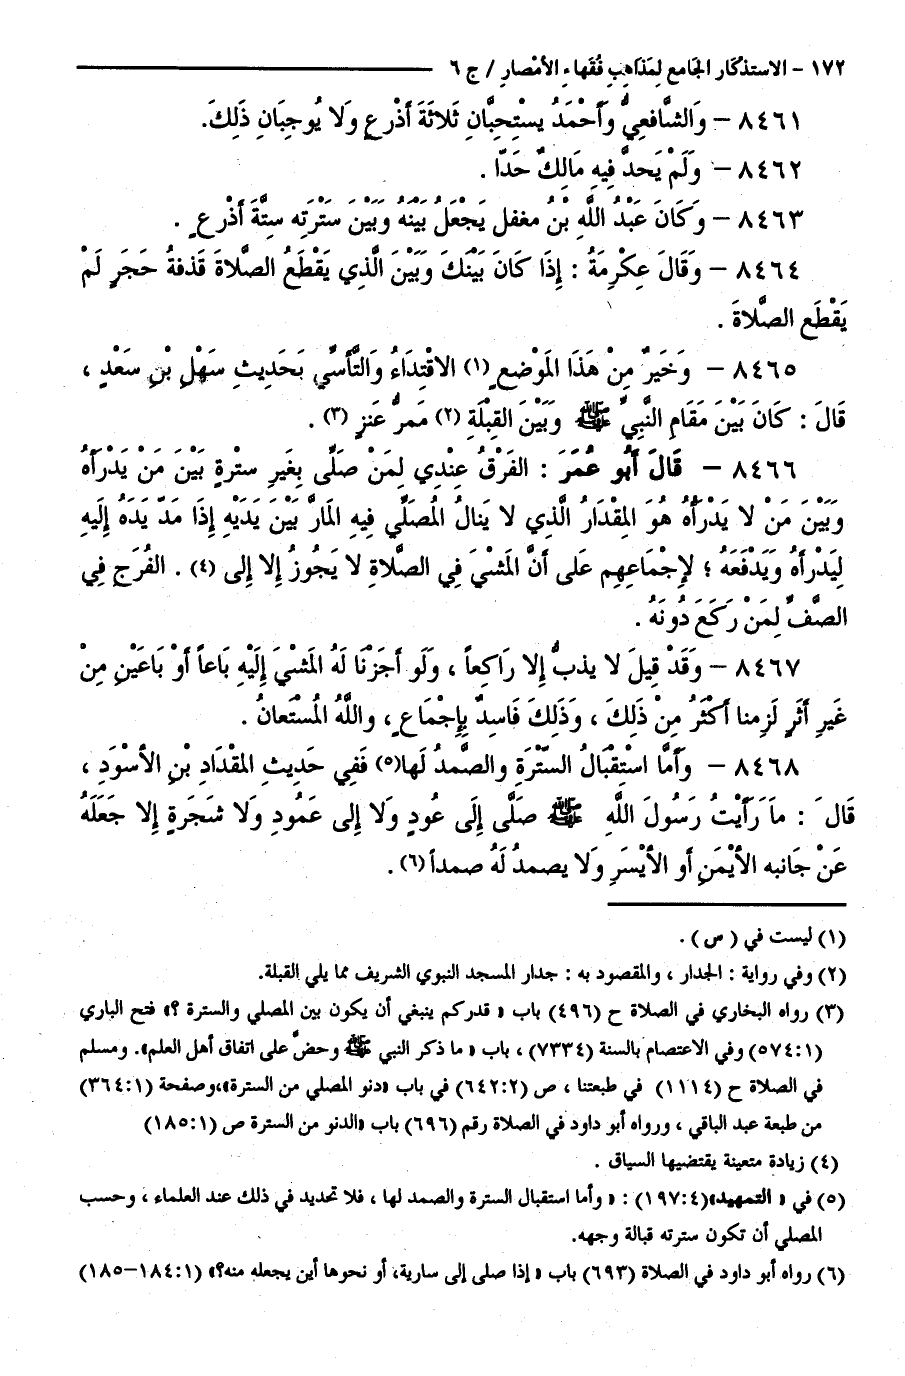 ١٧٢ - الاستذكار الجامع لمذاهب فقهاء الأمصار / ج ٦
٨٤٦١ - وَالشَّافعِيُّ وَأَحْمَدُ يستْحِبَّانِ ثَلاثَةَ أَذْرعٍ وَلَا يُوجبَانِ ذَلِكَ.
٨٤٦٢ - وَلَمْ يَحدَّ فِيهِ مَالِكٌ حَدّا .
٨٤٦٣ - وَكَانَ عَبْدُ اللَّهِ بْنُ مغفل يَجْعَلُ بَيْنَهُ وَبَيْنَ سَتْرَتِه سِتَّةَ أَذْرعٍ .
٨٤٦٤ - وَقَالَ عِكْرِمَةُ : إِذَا كَانَ بَيْنَكَ وَبَيْنَ الَّذِي يَقْطَعُ الصَّلاةَ قَذفةُ حَجَرٍ لَم
يَقْطَع الصَّلاةَ .
٨٤٦٥ - وَخَيرٌ مِنْ هَذَا المَوْضعِ (١) الاقْتِدَاءُ وَالتَّأَسِّي بَحَديثِ سَهْلِ بْنِ سَعْدٍ ،
قَالَ : كَانَ بَيْنَ مَقَامِ النَّبِيِّ ﷺ وَبَيْنَ القِبْلَةِ (٢) مَمرُّ عَنزٍ (٣) .
٨٤٦٦ - قَالَ أَبُو عُمَرَ : الفَرْقُ عِنْدِي لِمَنْ صَلَّى بِغَيرِ ستْرةٍ بَيْنَ مَنْ يَدْرَأُه
وَبَيْنَ مَنْ لا يَدْرأُه هُوَ المِقْدَارُ الَّذِي لا يَنالُ المُصَلِّي فِيهِ المَارَّ بَيْنَ يَدَيْهِ إِذَا مَدّ يَدَهُ إِلَيهِ
لِيَدْرَأَهُ وَيَدْفَعَهُ ؛ لإِجْمَاعِهِم عَلى أَنَّ المَشْيَ فِي الصَّلاةِ لا يَجُوزُ إِلا إِلى (٤) . الفُرَج فِي
الصَّفِّ لِمَنْ رَكَعَ دُونَهُ .
٨٤٦٧ - وَقَدْ قِيلَ لا يذبُّ إِلا رَاكِعاً ، وَلَو أَجَزْنَا لَهُ المَشْيَ إِلَيْهِ بَاعاً أَوْ بَاعَيْنِ مِنْ
غَيرِ أَثَرٍ لَزِمنا أَكْثَرُ مِنْ ذَلِكَ ، وَذَلِكَ فَاسِدٌ بِإِجْمَاعٍ ، واللَّهُ المُسْتَعانُ .
٨٤٦٨ - وَأَمَّا اسْتِقْبَالُ السّتْرَةِ والصَّمدُ لَها(٥) فَفِي حَديثِ المِقْدَادِ بْنِ الأَسْوَدِ ،
قَالَ : مَا رَأَيْتُ رَسُولَ اللَّهِ ﷺ صَلَّى إِلَى عُودٍ وَلا إِلى عَمُودٍ وَلَا شَجَرَةٍ إِلا جَعَلَهُ
عَنْ جَانبه الأَيْمَنِ أَو الأَيْسَرِ وَلا يصمدُ لَهُ صمداً (٦) .
(١) ليست في ( س ) .
(٢) وفي رواية : الجدار ، والمقصود به : جدار المسجد النبوي الشريف مما يلي القبلة.
(٣) رواه البخاري في الصلاة ح (٤٩٦) باب « قدركم ينبغي أن يكون بين المصلي والسترة ؟» فتح الباري
(٥٧٤:١) وفي الاعتصام بالسنة (٧٣٣٤) ، باب « ما ذكر النبي ﷺ وحضّ على اتفاق أهل العلم». ومسلم
في الصلاة ح (١١١٤) في طبعتنا ، ص (٦٤٢:٢) في باب «دنو المصلي من السترة»،وصفحة (٣٦٤:١)
من طبعة عبد الباقي ، ورواه أبو داود في الصلاة رقم (٦٩٦) باب «الدنو من السترة ص (١٨٥:١)
(٤) زيادة متعينة يقتضيها السياق .
(٥) في « التمهيد»(١٩٧:٤) : « وأما استقبال السترة والصمد لها ، فلا تحديد في ذلك عند العلماء ، وحسب
المصلي أن تكون سترته قبالة وجهه.
(٦) رواه أبو داود في الصلاة (٦٩٣) باب « إذا صلى إلى سارية، أو نحوها أين يجعله منه؟» (١٨٤:١-١٨٥)